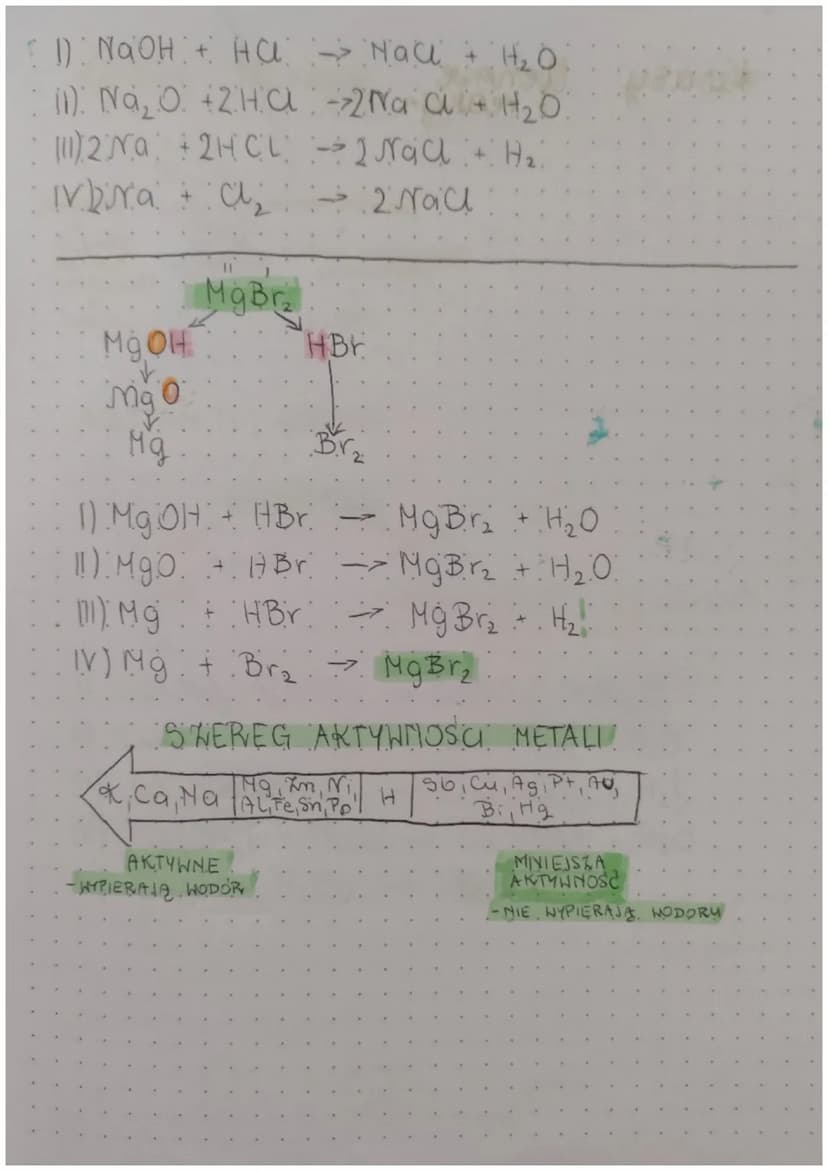 I) NaOH + HCl → NaCl + H₂O
II) Na₂O + 2HCl → 2NaCl + H₂O
III) 2Na + 2HCl → 2NaCl + H₂
IV) 2Na + Cl₂ → 2NaCl
II I
MgBr₂
MgOH HBr
MgO
Mg Br₂
I) MgOH + HBr → MgBr₂ + H₂O
II) MgO + HBr → MgBr₂ + H₂O
III) Mg + HBr → MgBr₂ + H₂!
IV) Mg + Br₂ → MgBr₂
SZEREG AKTYWNOŚCI METALI
K, Ca, Na Mg, Zn, Ni, H Sb, Cu, Ag, Pt, Au,
Al, Fe, Sn, Pb Bi, Hg
AKTYWNE MNIEJSZA
- WYPIERAJĄ WODÓR AKTYWNOŚĆ
- NIE WYPIERAJĄ WODORU